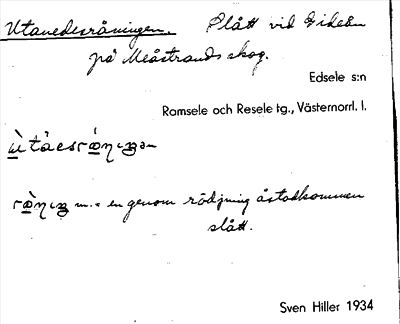 Utanedesråningen. Slått vid Gideån
på Meåstrands skog.
Edsele s:n
Ramsele och Resele tg., Västernorrl. l.
m. = en genom rödjning åstadkommen
slått.
Sven Hiller 1934